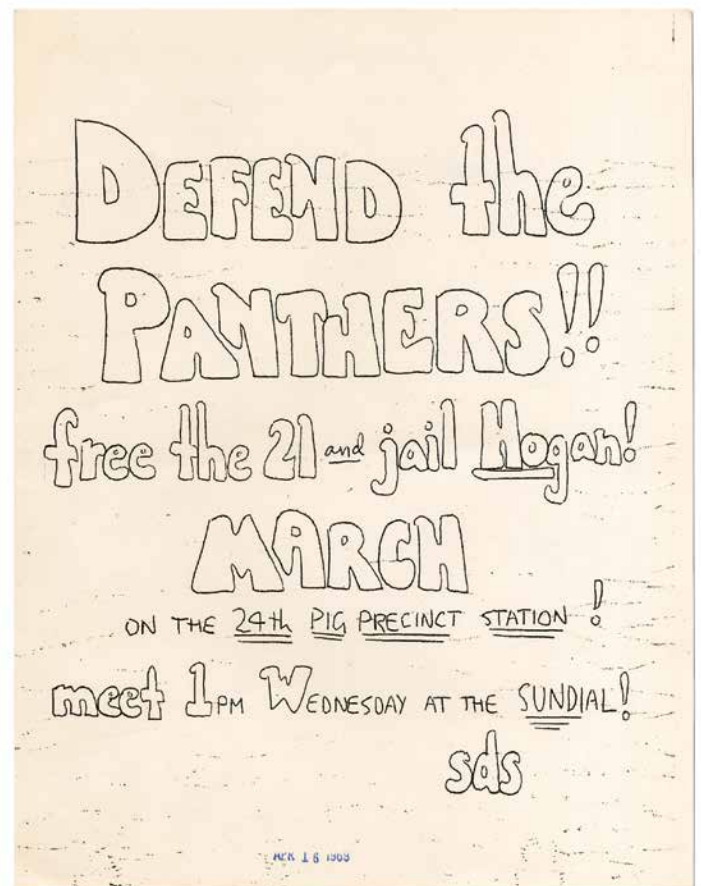 DEFEND the
PANTHERS!!
free the 21 and jail Hogan!
MARCH
ON THE 24th PIG PRECINCT STATION!
meet 1PM WEDNESDAY AT THE SUNDIAL!
sds
APR 16 1969